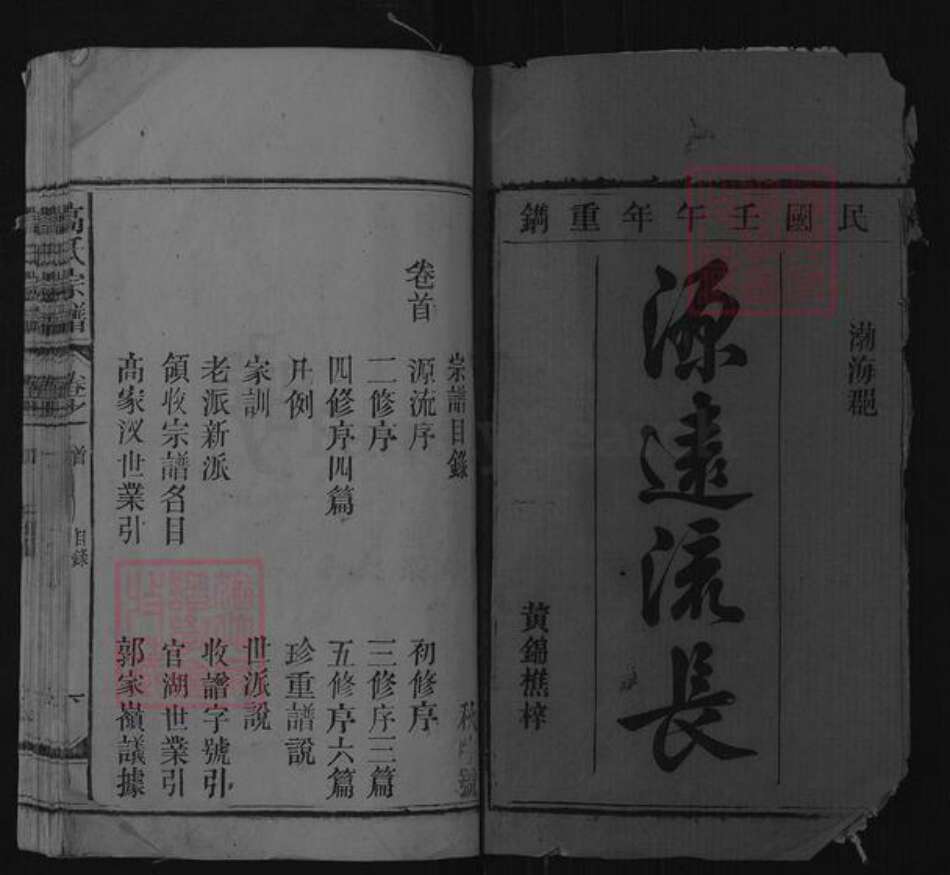 民國壬午年重鐫
渤海郡
源遠流長
黃錦樵梓
宗譜目錄
卷首
源流序　初修序
二修序　三修序三篇
四修序四篇　五修序六篇
凡例　珍重譜說
家訓　世派說
老派新派　收譜字號引
領收宗譜名目　官湖世業引
高家汊世業引　郭家嶺議據
高氏宗譜
卷之首
目錄
一